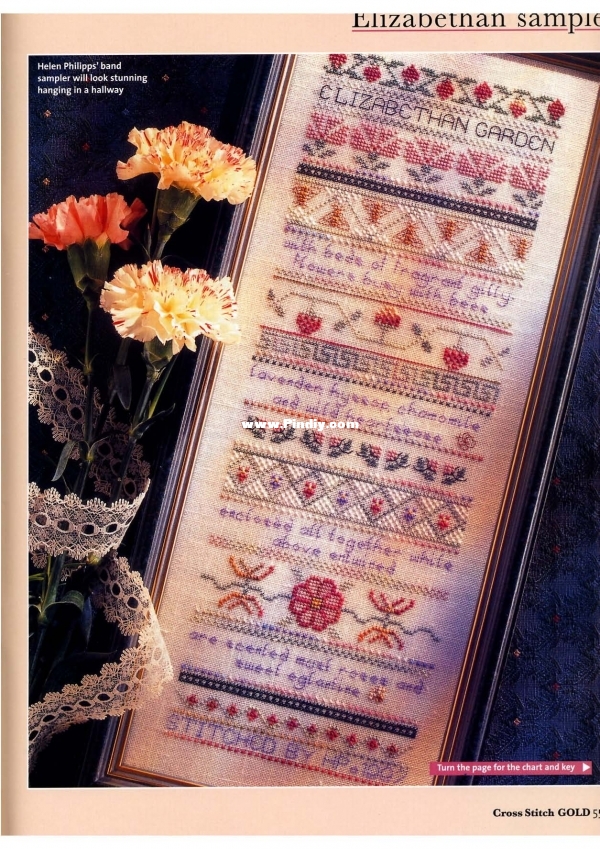 Elizabethan sample
Helen Philipps' band
sampler will look stunning
hanging in a hallway
ELIZABETHAN GARDEN
with beds of fragrant gilly
flowers busy with bees
lavender hyssop chamomile
and
www.Pindiy.com
enclosed all together while
above entwined
are scented musk roses and
sweet eglantine
STITCHED BY HP
Turn the page for the chart and key
Cross Stitch GOLD 55